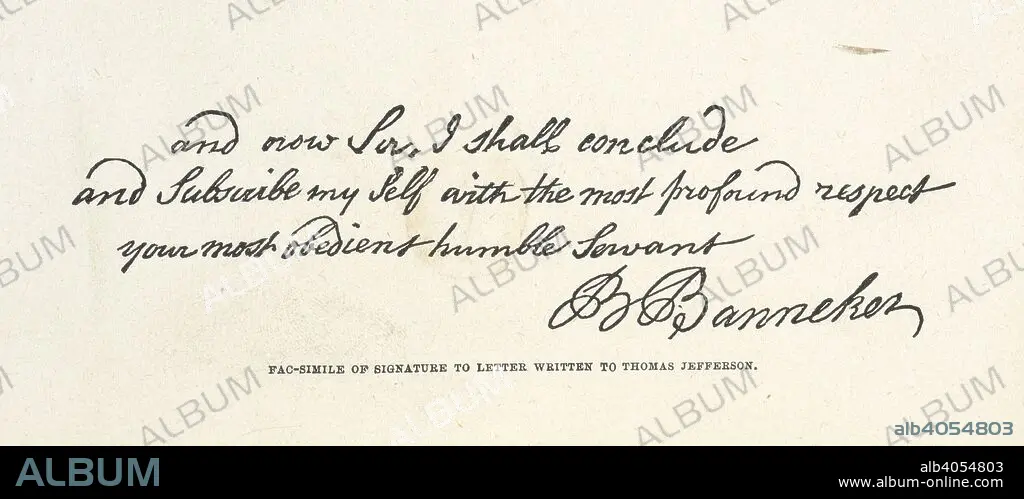 and now Sir, I shall conclude
and Subscribe my Self with the most profound respect
your most obedient humble Servant
B Banneker
FAC-SIMILE OF SIGNATURE TO LETTER WRITTEN TO THOMAS JEFFERSON.
alb4054803
ALBUM
alb4054803
www.album-online.com